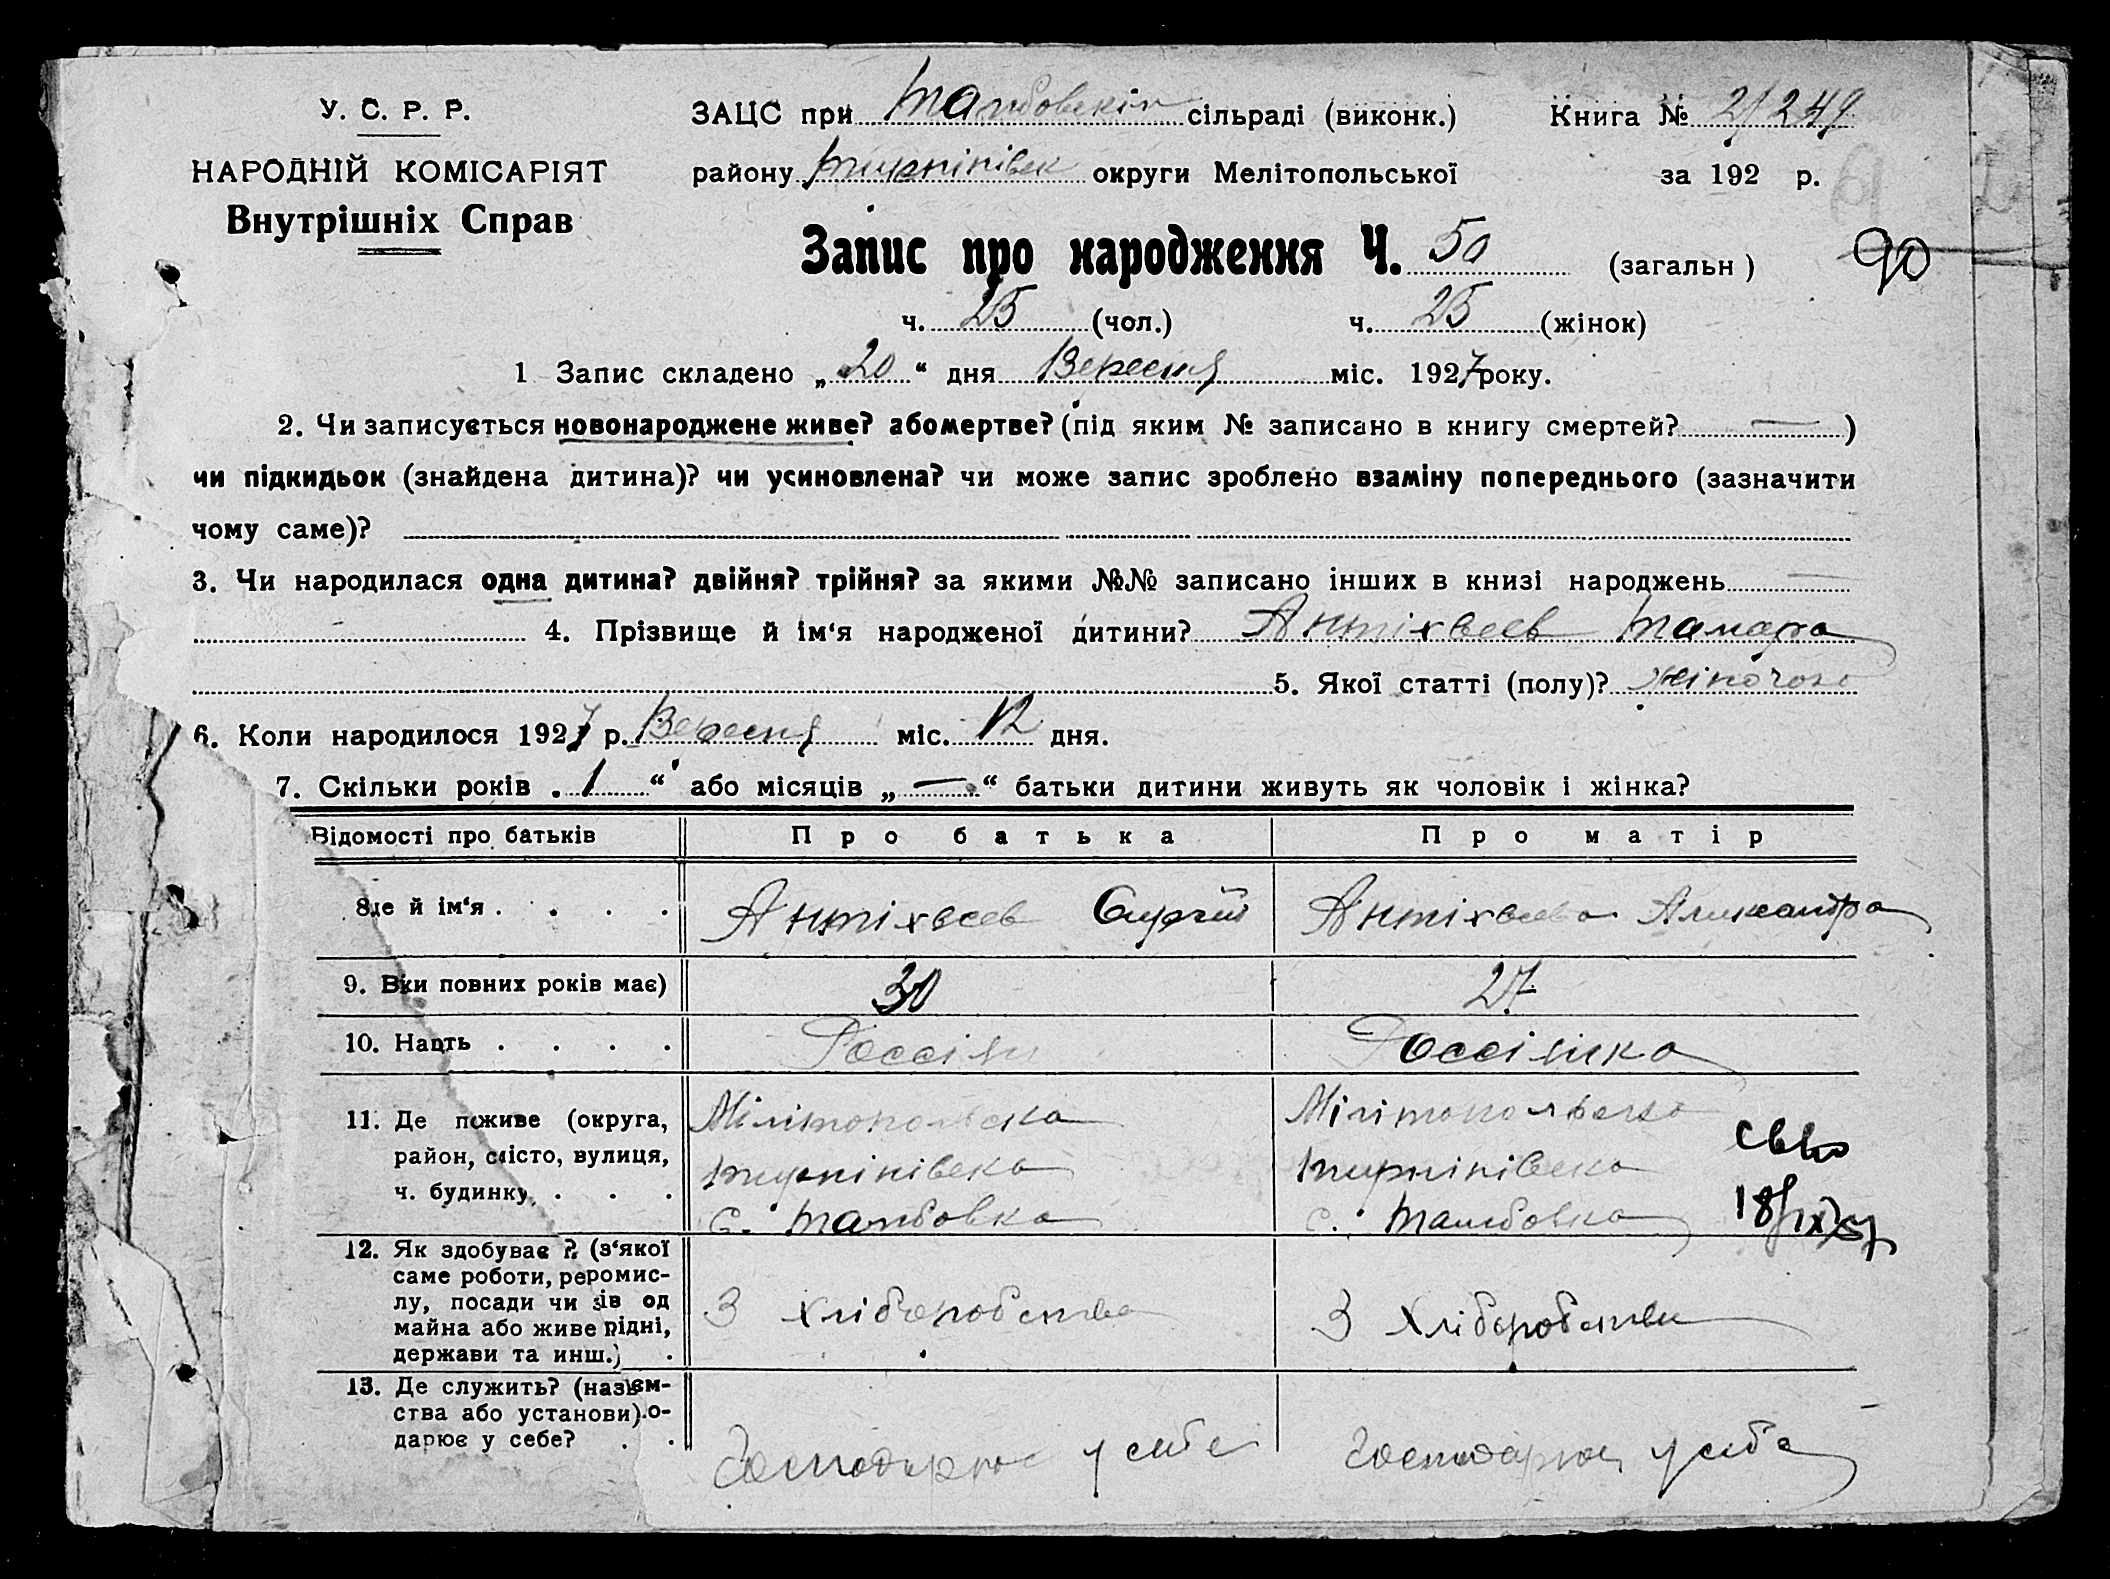 У. С. Р. Р.
НАРОДНІЙ КОМІСАРІЯТ
Внутрішніх Справ
ЗАЦС при Тамбовскій сільраді (виконк.) Книга №
району округи Мелітопольської за 192 р.
Запис про народження Ч. 50 (загальн)
90
ч. 25 (чол.) ч. 25 (жінок)
1 Запис складено „20“ дня Вересня міс. 1927 року.
2. Чи записується новонароджене живе? або мертве? (під яким № записано в книгу смертей? — )
чи підкидьок (знайдена дитина)? чи усиновлена? чи може запис зроблено взаміну попереднього (зазначити
чому саме)?
3. Чи народилася одна дитина? двійня? трійня? за якими №№ записано інших в книзі народжень —
4. Прізвище й ім‘я народженої дитини? Антіхвеев Тамара
5. Якої статті (полу)? жіночого
6. Коли народилося 1927 р. Вересня міс. 12 дня.
7. Скільки років „ 1 “ або місяців „ — “ батьки дитини живуть як чоловік і жінка?
Відомості про батьків Про батька Про матір
8. й ім‘я . . . . Антіхвеев Сергій Антіхвеева Александра
9. повних років має) 30 27
10. . . . . Россіян Россіянка
11. Де живе (округа, Мілітопольска Мілітопольска
район, вулиця,
ч. будинку . . . с. Тамбовка с. Тамбовка
12. Як здобуває (з‘якої
саме роботи,
лу, посади чи од З хліборобства З Хліборобства
майна або живе
держави та инш.) .
13. Де служить?
ства або установи)
дарює у себе? . . Господарює у себе Господарює у себе